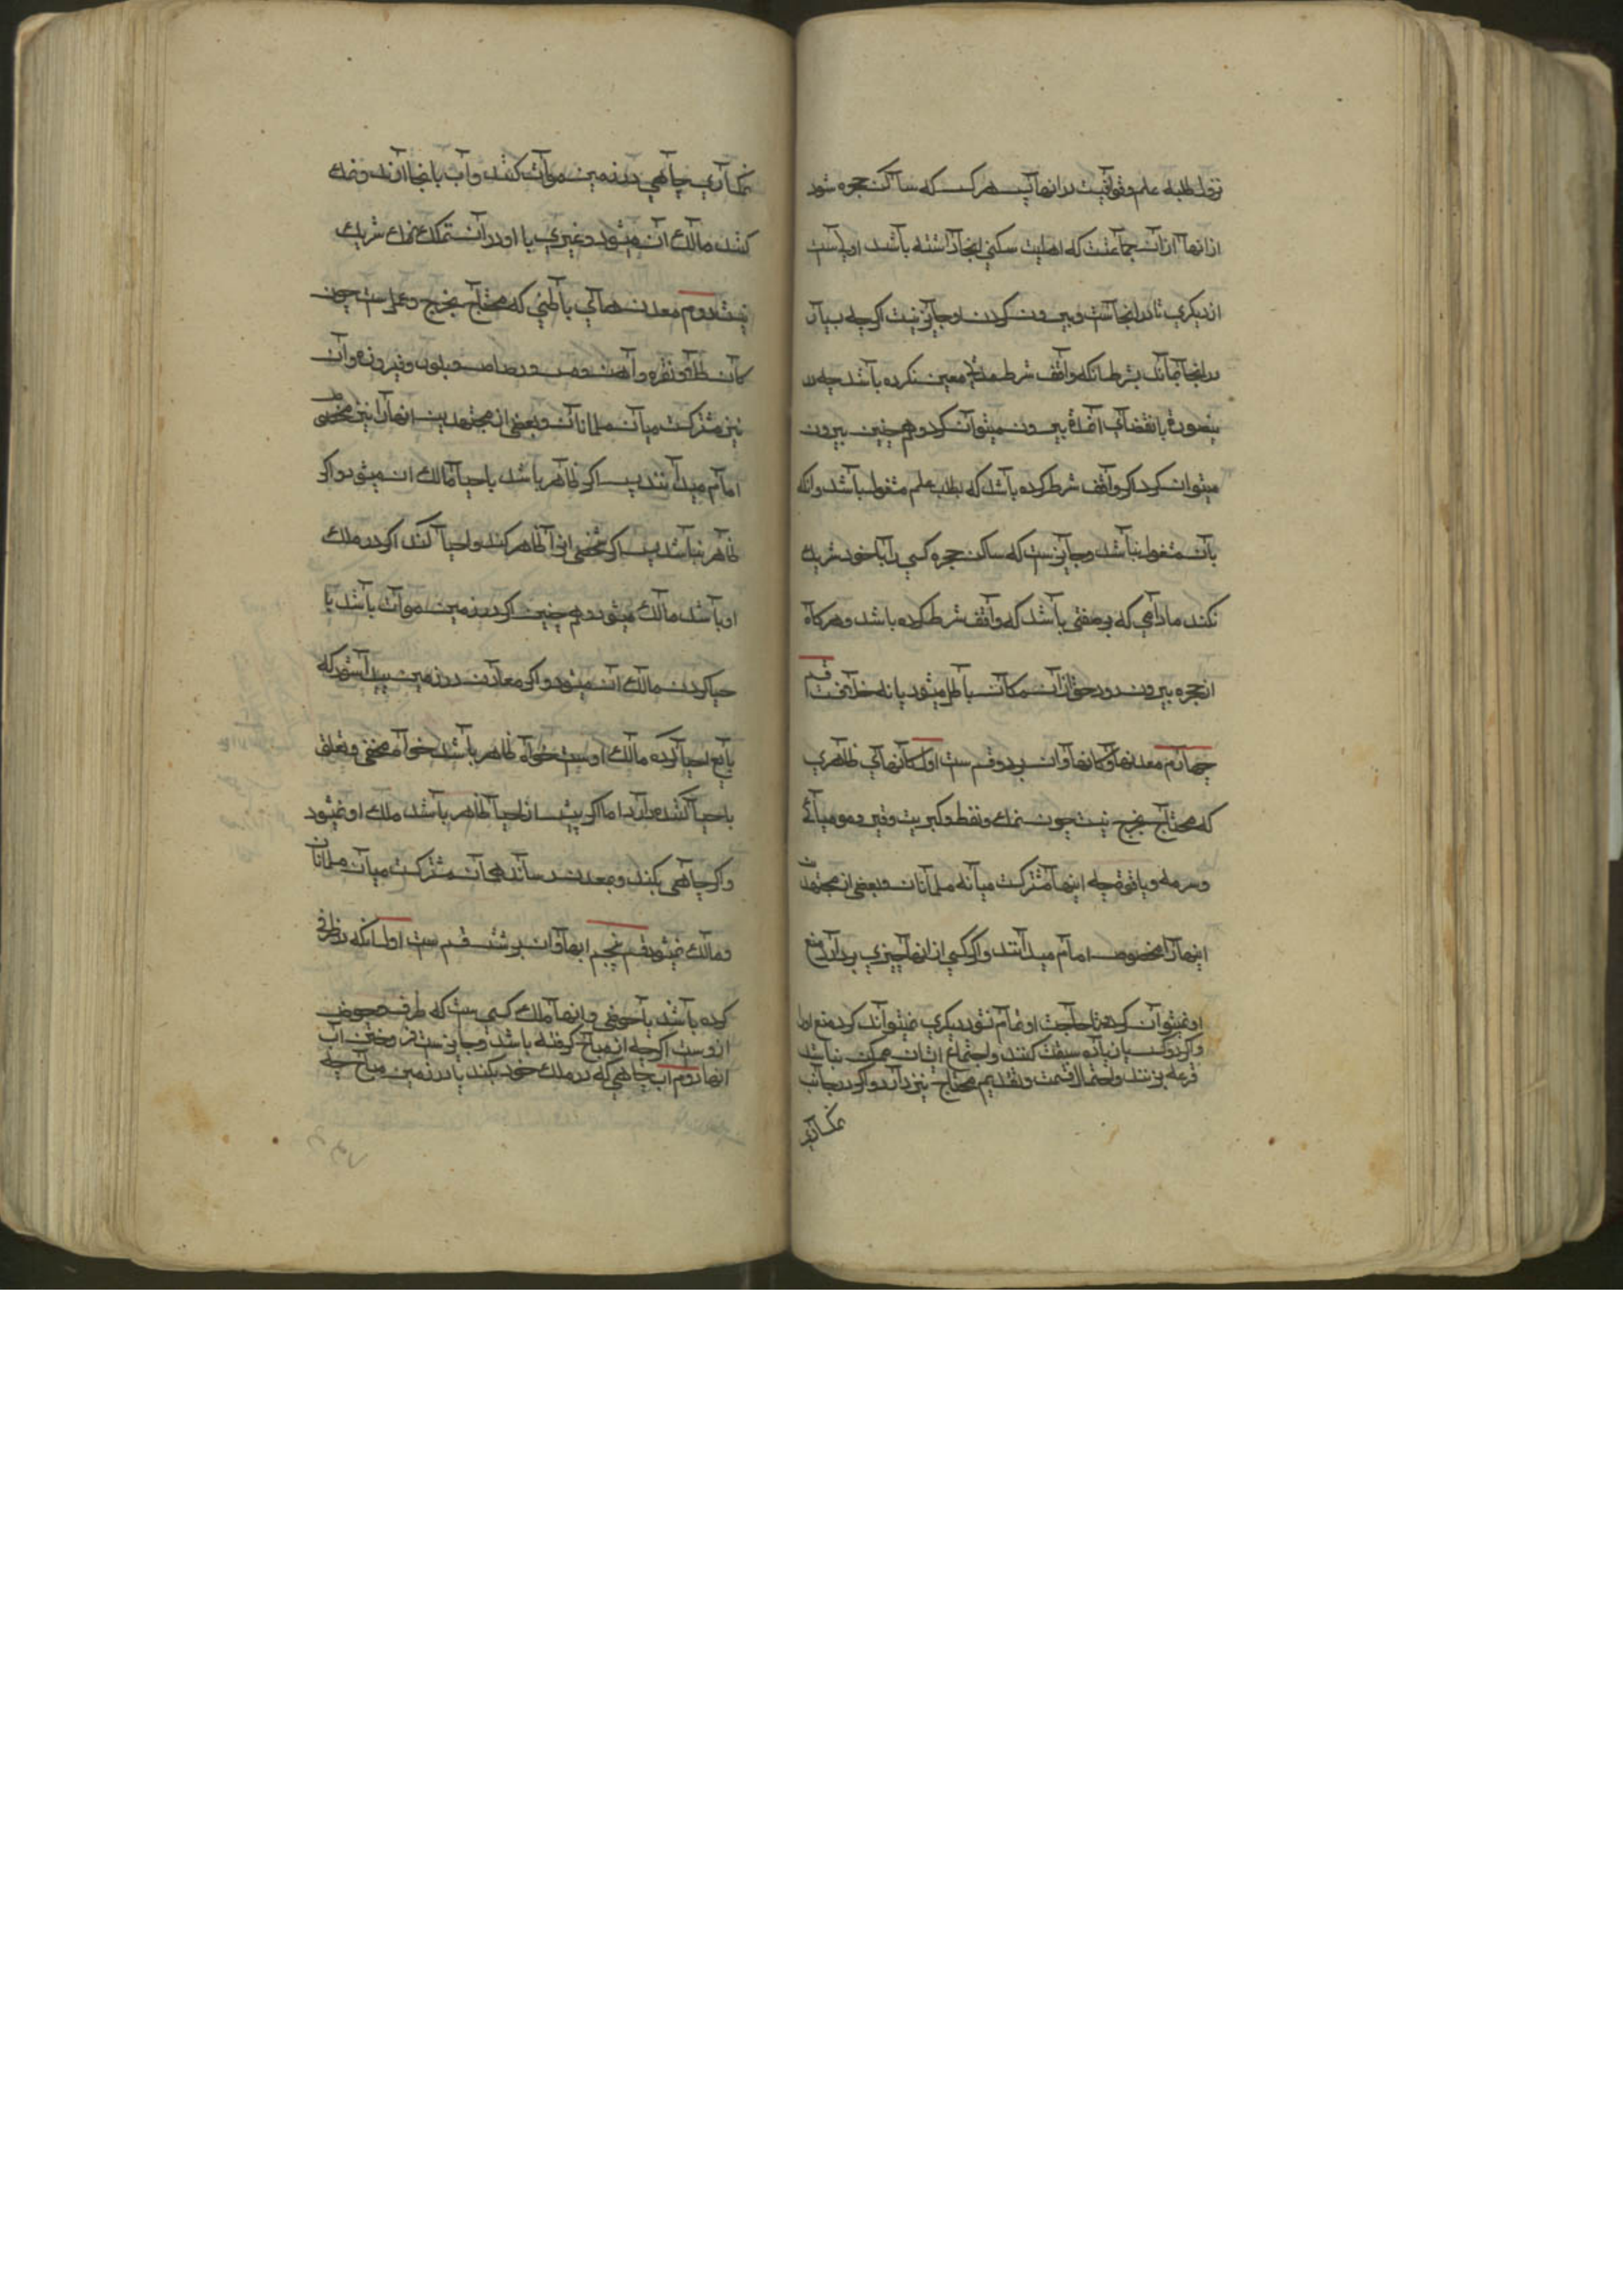 نزول طلبه علم و قوافیست در انها پس هر کس که ساکن حجره شود
از انها از آن جماعتست که اهلیت سکنی انجا داشته باشد اولاست
از دیکری تا در انجاست و بیرون کردن او جایز نیست اکرچه بسیار
در انجا بماند بشرط انکه واقف شرط مدة معین نکرده باشد چه در
ینصورة بانقضای آنمدة بیرون میتوان کرد و همچنین بیرون
میتوان کرد اکر واقف شرط کرده باشد که بطلب علم مشغول باشد و انکه
بآن مشغول نباشد و جایز ست که ساکن حجره کسی را با خود شریک
نکند مادامی که بوصفی باشد که واقف شرط کرده باشد و هر کاه
از حجره بیرون رود حق از آن مکان باطل میشود یا نه خلافست قسم
چهارم معدنها و کانها و ان بر دو قسم ست اول کانهای ظاهری
که محتاج بخرج نیست چون نمک و نفط و کبریت و قیر و مومیائی
و سرمه و یاقوت چه اینها مشترکست میانه مسلمانان و بعضی از مجتهدین
اینها را مخصوص امام میدانند و اکر کسی از انها چیزی بردارد منع
او نمیتوان کرد تا حاجت او تمام نشود دیکری نمیتواند کرد منع او را
و اکر دو کس یا زیاده سبقت کنند و اجتماع ایشان ممکن نباشد
قرعه بزنند و احتمال قسمت و تقدیم محتاج نیز دارد و اکر در جانب
نمکزاری
نمکزاری چاهی در زمین موات کنند و آب بانجا اورند و نمک
کنند مالک ان میشود و غیری با او در آن تملک نمک شریک
نیست دوم معدنهای باطنی که محتاج بخرج و عمل ست چون
کان طلا و نقره و آهن و مس و رصاص و بلور و فیروزه و آن
نیز مشترکست میان مسلمانان و بعضی از مجتهدین انها را نیز مخصوص
امام میدانند پس اکر ظاهر باشد باحیا مالک ان میشود و اکر
ظاهر نباشد پس اکر شخصی انرا ظاهر کند و احیا کند اکر در ملک
او باشد مالک میشود و همچنین اکر در زمین موات باشد با
حیا کردن مالک ان میشود و اکر معادن در زمین پیدا شود که
بایع احیا کرده مالک اوست خواه ظاهر باشد خواه مخفی و تعلق
باحیا کننده دارد اما اکر پیش از احیا ظاهر باشد ملک او نمیشود
و اکر چاهی بکند و بمعدن رساند هم آن مشترکست میان مسلمانان
و مالک نمیشود قسم پنجم ابها و ان بر شش قسم ست اول انکه در ظرفی
کرده باشد یا حوضی و اینها ملک کسی ست که ظرف و حوض
ازوست اکرچه از مباح کرفته باشد و جایز ست فروختن آب
انها دوم اب چاهی که در ملک خود بکند یا در زمین مباح چه